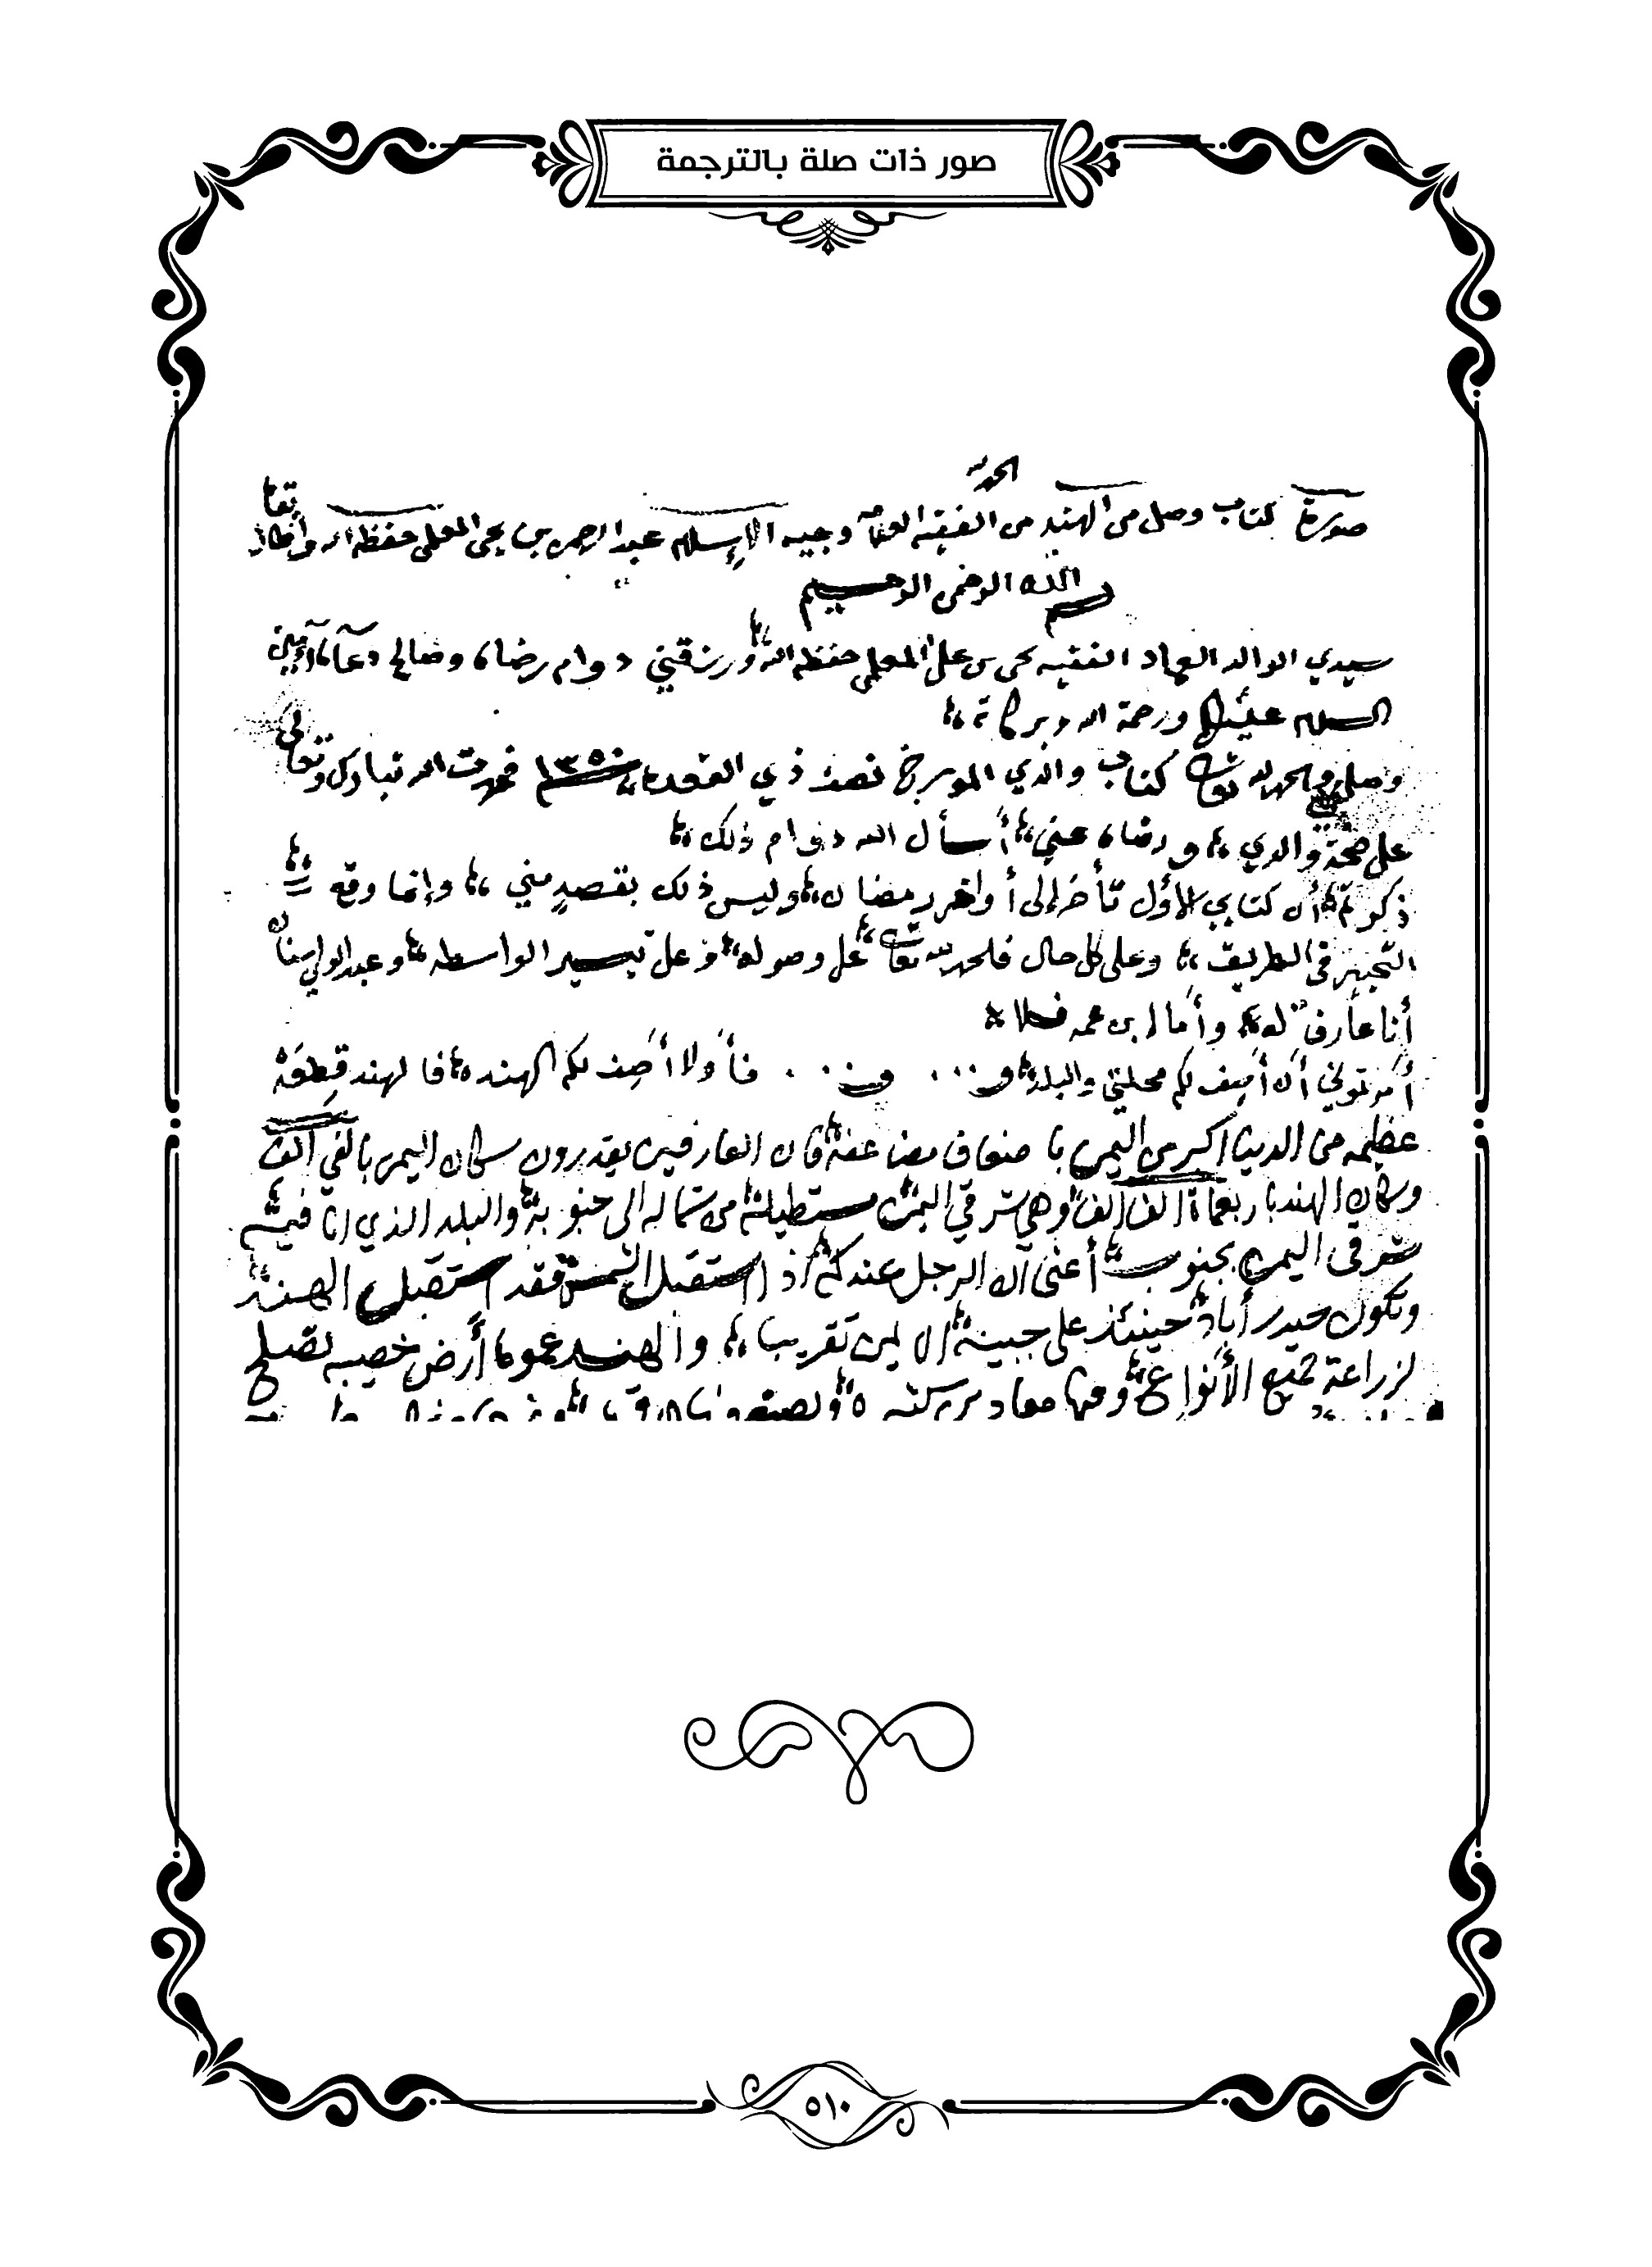 صور ذات صلة بالترجمة
الحمد لله
صورة كتاب وصل من الهند من الفقيه العلامة وجيه الإسلام عبد الرحمن بن يحيى المعلمي حفظه الله تعا
بسم الله الرحمن الرحيم
سيدي الوالد العماد الفقيه يحيى بن علي المعلمي حفظه الله ورزقني دوام رضاه وصالح دعآه آمين
السلام عليكم ورحمة الله وبركاته
وصلني والحمد لله تعالى كتاب والدي المورخ نصف ذي القعده ١٣٥٠ فحمدت الله تبارك وتعالى
على صحة والدي ورضاه عني أسأل الله دوام ذلك
ذكرتم أن كتابي الأول تأخر إلى أواخر رمضان وليس ذلك بقصدٍ مني وإنما وقع
في الطريق وعلى كل حال فلحمد لله تعالى على وصوله وعلى تيسير الواسطه وعبد الولي سنان
أنا عارف له وأما ابن عمه فلا
أمرتموني أن أصف لكم محلتي والبلد و... و... فأولا أصف لكم الهند فالهند قطعة
عظيمه من الدنيا اكبر من اليمن باضعاف مضاعفه فان العارفين يقدرون سكان اليمن بالفي الف
وسكان الهند باربعماة الف الف وهي شرقي اليمن مستطيلة من شماله الى جنوبه والبلد الذي انا فيه
شرقي اليمن بجنوب أعني أن الرجل عندكم اذا استقبل الشمس فقد استقبل الهند
وتكون حيدر أباد حينئذ على جبينه الايمن تقريبا والهند عموما أرض خصبه تصلح
لزراعة جميع الأنواع وفيها معادن كثيره
٥١٠